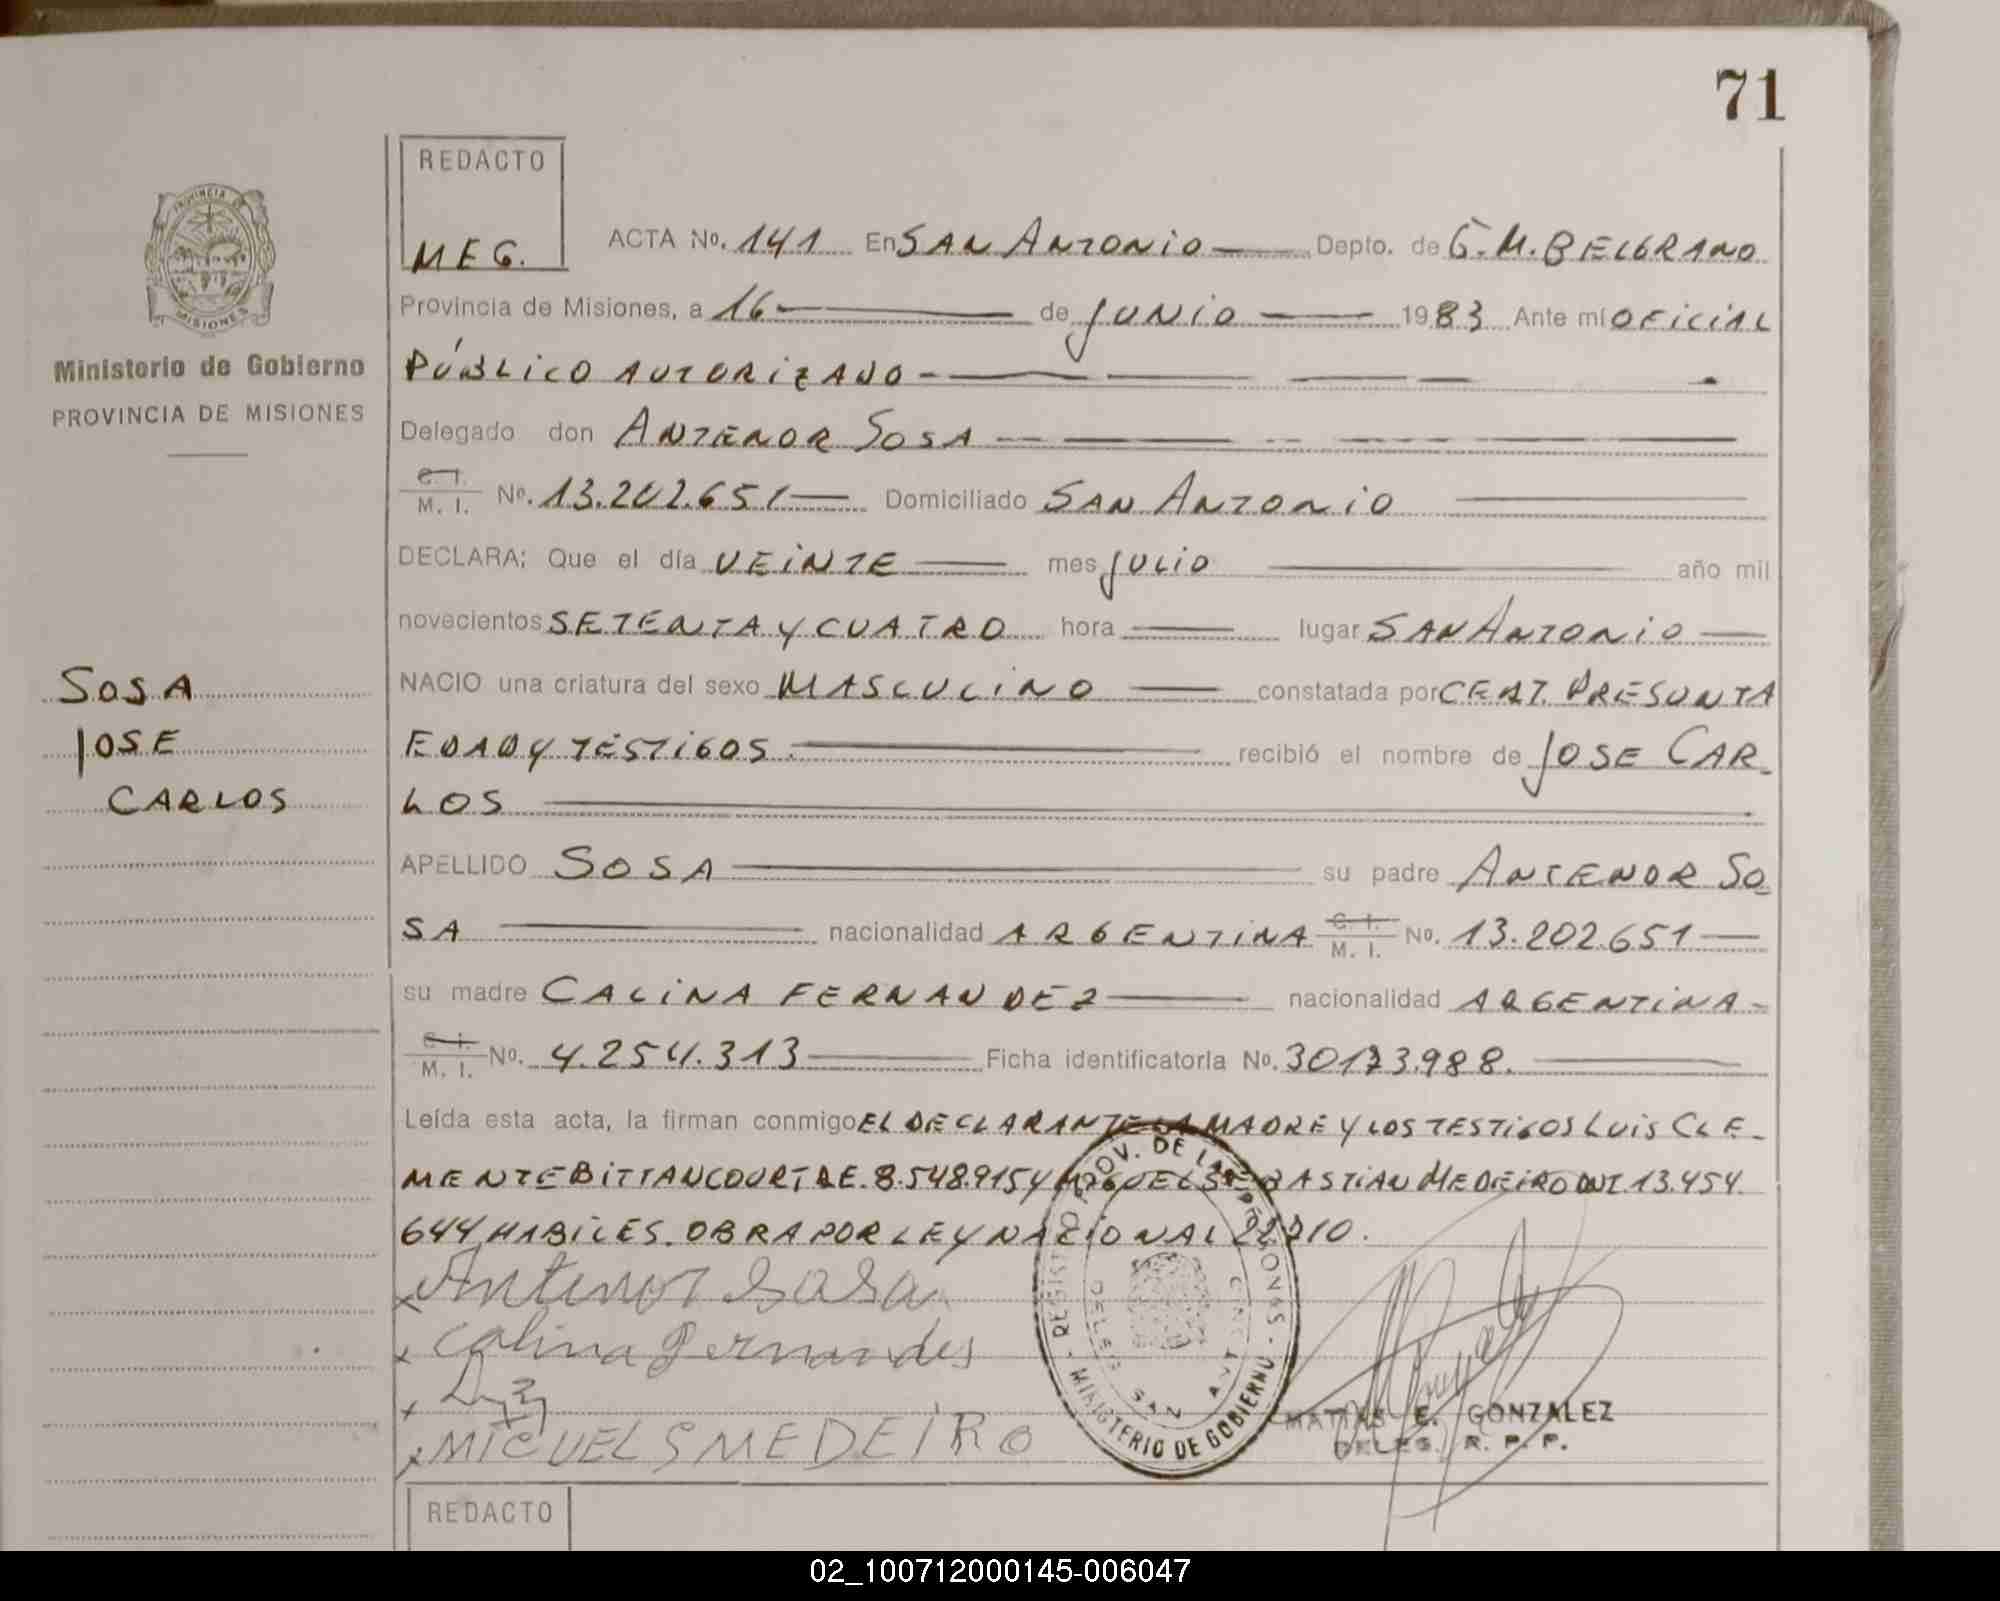 71
REDACTO
MEG.
PROVINCIA DE
MISIONES
Ministerio de Gobierno
PROVINCIA DE MISIONES
SOSA
JOSE
CARLOS
ACTA No. 141 En SAN ANTONIO Depto. de G. M. BELGRANO
Provincia de Misiones, a 16 de JUNIO 1983 Ante mí OFICIAL
PÚBLICO AUTORIZADO
Delegado don ANTENOR SOSA
C. I. / M. I. No. 13.202.651 Domiciliado SAN ANTONIO
DECLARA: Que el día VEINTE mes JULIO año mil
novecientos SETENTA Y CUATRO hora lugar SAN ANTONIO
NACIO una criatura del sexo MASCULINO constatada por CERT. PRESUNTA
EDAD Y TESTIGOS. recibió el nombre de JOSE CAR-
LOS
APELLIDO SOSA su padre ANTENOR SO-
SA nacionalidad ARGENTINA C. I. / M. I. No. 13.202.651
su madre CALINA FERNANDEZ nacionalidad ARGENTINA
C. I. / M. I. No. 4.254.313 Ficha identificatoria No. 30173.988.
Leída esta acta, la firman conmigo EL DECLARANTE LA MADRE Y LOS TESTIGOS LUIS CLE-
MENTE BITTANCOURT DE. 8.548.915 Y MIGUEL SEBASTIAN MEDEIRO DNI. 13.454.
644 HABILES. OBRA POR LEY NACIONAL 22710.
x Antenor Sosa
x Calina Fernandes
x
x MIGUEL S MEDEIRO
REGISTRO PROV. DE LAS PERSONAS
MINISTERIO DE GOBIERNO
DELEG. SAN ANTONIO
MATIAS E. GONZALEZ
DELEG. R. P. P.
REDACTO
02_100712000145-006047